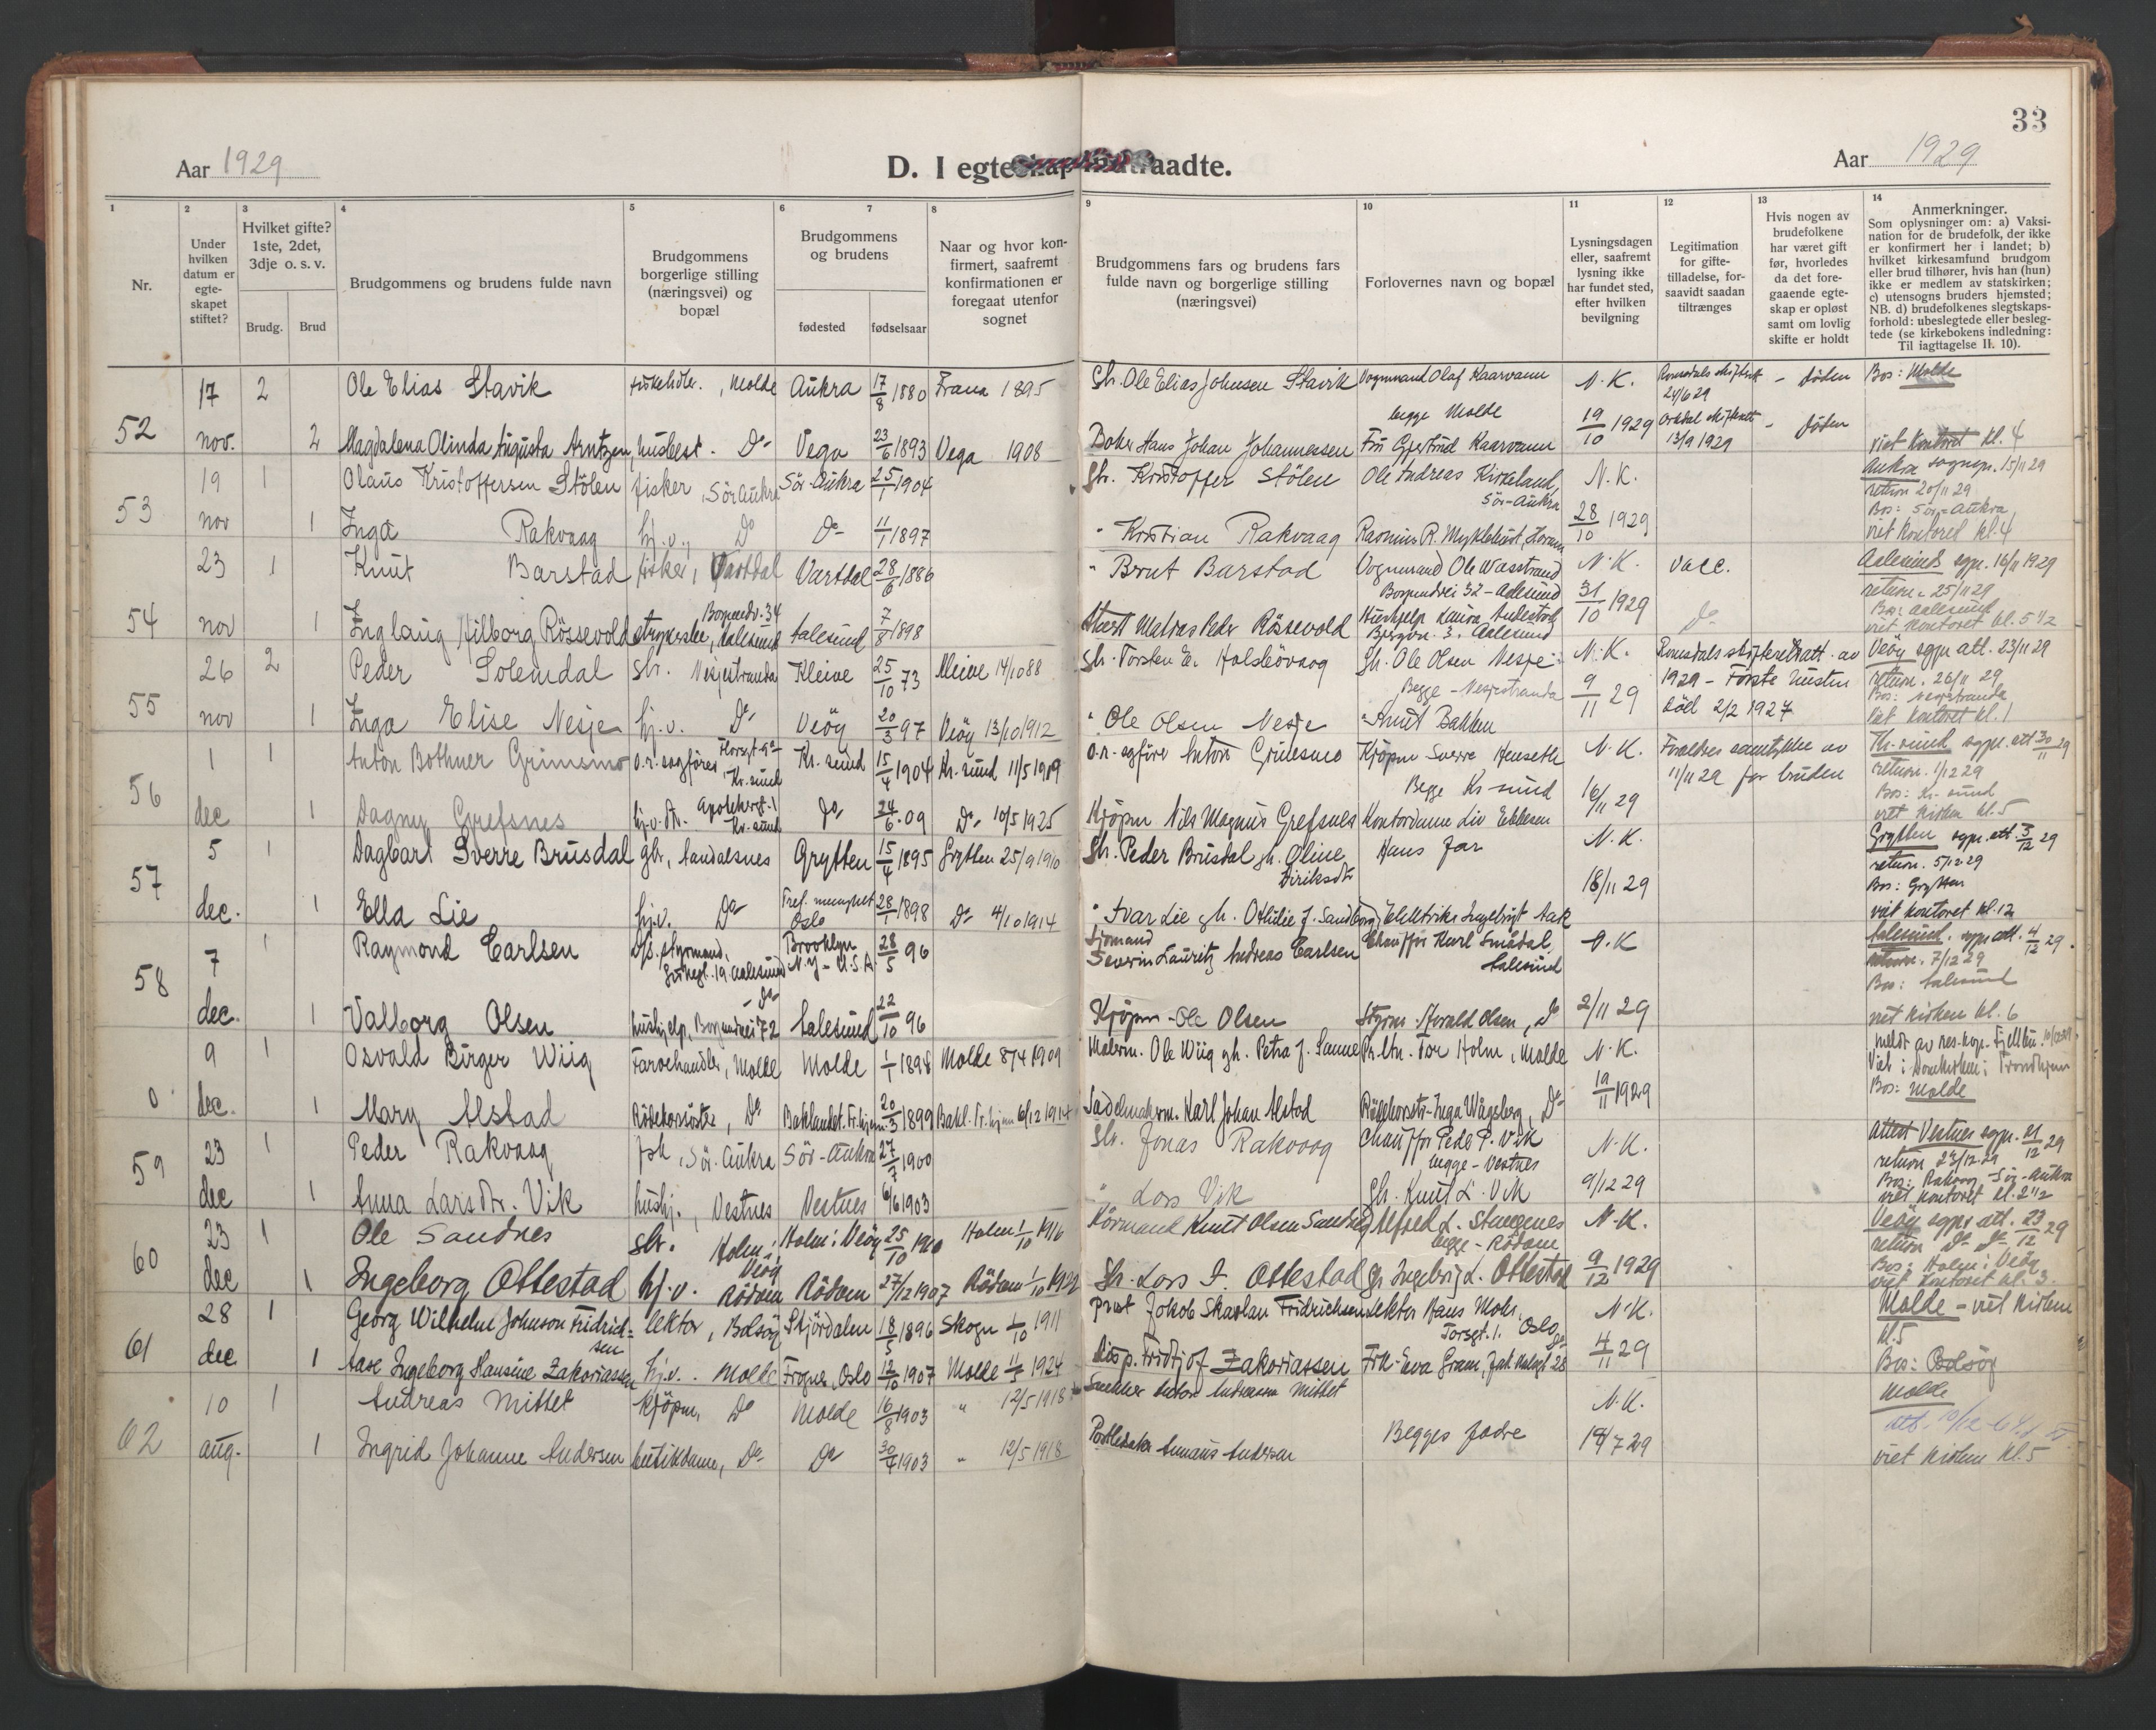 33
Aar 1929
D. I egteskap indtraadte.
Aar 1929
1
2 Under hvilken datum er egte-skapet stiftet?
3 Hvilket gifte? 1ste, 2det, 3dje o. s. v.
4
5
6
7
8
9
10
11
12
13
14
Nr.
Brudg.
Brud
Brudgommens og brudens fulde navn
Brudgommens borgerlige stilling (næringsvei) og bopæl
Brudgommens og brudens
fødested
fødselsaar
Naar og hvor kon-firmert, saafremt konfirmationen er foregaat utenfor sognet
Brudgommens fars og brudens fars fulde navn og borgerlige stilling (næringsvei)
Forlovernes navn og bopæl
Lysningsdagen eller, saafremt lysning ikke har fundet sted, efter hvilken bevilgning
Legitimation for gifte-tilladelse, for-saavidt saadan tiltrænges
Hvis nogen av brudefolkene har været gift før, hvorledes da det fore-gaaende egte-skap er opløst samt om lovlig skifte er holdt
Anmerkninger.
Som oplysninger om: a) Vaksi-nation for de brudefolk, der ikke er konfirmert her i landet; b) hvilket kirkesamfund brudgom eller brud tilhører, hvis han (hun) ikke er medlem av statskirken; c) utensogns bruders hjemsted; NB. d) brudefolkenes slegtskaps-forhold: ubeslegtede eller besleg-tede (se kirkebokens indledning: Til iagttagelse II. 10).
52
17 2 Ole Elias Stavik , Molde Aukra 17/8 1880 Fræna 1895 Gh. Ole Elias Johnsen Stavik Vognmand Olaf Haarvann N. K. 24/6 29 - døden Bos: Molde
begge Molde
nov. 2 Magdalena Olinda Augusta Arntzen, husbest. Do Vega 23/6 1893 Vega 1908 Baker Hans Johan Johannessen Fru Gjertrud Haarvann 19/10 1929 13/9 1929 - døden viet kontoret kl. 4
53
19 1 Olaus Kristoffersen Stölen fisker, Sör Aukra Sör-Aukra 25/1 1904 Gh. Kristoffer Stölen Ole Andreas Kirkeland, Sör-Aukra N. K. Aukra sognepr. 15/11 29
return 20/11 29
Bos: Sör-Aukra
nov 1 Inga Rakvaag hj.v., Do Do 11/1 1897 " Kristian Rakvaag Rasmus R. Myklebust, 28/10 1929 viet kontoret kl. 4
54
23 1 Knut Barstad fisker, Vartdal Vartdal 28/6 1886 " Brut Barstad Vognmand Ole Wasstrand N. K. vacc. Aalesunds sgpr. 16/11 1929
Borgundvei 32 - Aalesund
return. 25/11 29
Bos: Aalesund
nov 1 Inglaug Hilborg Rössevold Borgundv. 34 Aalesund Aalesund 7/8 1898 Peder Rössevold Hushjelp Laura 31/10 1929 Do viet kontoret kl. 5 1/2
55
26 2 Peder Solemdal gbr. Nesjestranda Kleive 25/10 73 Kleive 14/10 88 gh. Torsten E. Gh. Ole Olsen Nesje N. K. Romsdals skifterett att. av Veöy sgpr att. 23/11 29
Begge - Nesjestranda
1929 - Förste hustru
return. 26/11 29
Bos: Nesjestranda
nov 1 Inga Elise Nesje hj.v. Do Veöy 20/3 97 Veöy 13/10 1912 " Ole Olsen Nesje " Knut Bakken 9/11 29 död 2/2 1927 viet kontoret kl. 1
56
1 1 Anton Bothner Grimsmo o.r. sagförer Kr. sund Kr. sund 15/4 1904 Kr. sund 11/5 1919 o.r. sagförer Anton Grimsmo Kjöpm Sverre Henseth N. K. Forældres samtykke av Kr. sund sogpr. att 30/11 29
Begge Kr-sund
11/11 29 for bruden
return. 1/12 29
Bos: Kr. sund
dec 1 Dagny Grefsnes Apothekergt. 1 Kr. sund Do 24/6 09 Do 10/5 1925 Kjöpm Nils Magnus Grefsnes Kontordame Liv Ebbesen 16/11 29 viet kirken kl. 5
57
5 1 Dagbart Sverre Brusdal gbr, Aandalsnes Grytten 15/4 1895 Grytten 25/9 1910 Gh. Peder Brusdal gh. Oline Diriksdtr Hans far N. K. Grytten sgpr. att. 3/12 29
return. 5/12 29
Bos: Grytten
dec. 1 Ella Lie hj.v. Do Oslo 28/1 1898 Do 4/10 1914 " Ivar Lie gh. Othilie f. Sandberg 18/11 29 viet kontoret kl. 12
58
7 1 Raymond Carlsen D/s. styrmand, 19 Aalesund Brooklyn N.Y - U.S.A 28/5 96 Sjömand Severin Lauritz Andreas Carlsen Chauffør Karl Smådal, Aalesund N. K Aalesund. sgpr att. 4/12 29.
return. 7/12 29
Bos: Aalesund
dec. 1 Valborg Olsen hushjelp, Borgundvei 72 Do Aalesund 22/10 96 Kjöpm - Ole Olsen Styrm. Harald Olsen, Do 2/11 29 viet kirken kl. 6
0
9 1 Osvald Birger Wiig Farvehandler, Molde Molde 1/1 1898 Molde 1909 Malerm. Ole Wiig gh. Petra f. Sanne Pr.ltn. Tor Holm, Molde N. K. meldt av res. kap.
Viet i Domkirken i Trondhjem
dec. 1 Mary Alstad Rödekorssöster, Do Baklandet Tr.hjem 20/3 1899 Bakl. Tr.hjem 6/12 1914 Sadelmakerm. Karl Johan Alstad Rödekorsstr. Inga Wågsberg, Do 19/11 1929 Bos: Molde
59
23 1 Peder Rakvaag fsk, Sör-Aukra Sör-Aukra 27/7 1900 Gh. Jonas Rakvaag Chauffør Peder P. Vik N. K. attest Vestnes sogpr. 21/12 29
begge - Vestnes
return 23/12 29
Bos: Rakvaag Sör-Aukra
dec 1 Anna Larsdtr. Vik hushj., Vestnes Vestnes 6/6 1903 " Lars Vik Gh. Knut L. Vik 9/12 29 viet kontoret kl. 2 1/2
60
23 1 Ole Sandnes gbr. Holm i Veöy Holm i Veöy 25/10 1900 Holm 1/10 1916 Knut Olsen Sandnes Alfred L. Stangenes N. K. Veöy sogpr att. 23/12 29
begge - Rödven
return Do Do
Bos: Holm i Veöy
dec 1 Ingeborg Ottestad hj.v. Rödven Rödven 27/12 1907 Rödven 1/10 1922 Gh. Lars I. Ottestad Ingebrigt L. Ottestad 9/12 1929 viet kontoret kl. 3
61
28 1 Georg Wilhelm Johnson Fridrichsen lektor, Bolsöy Stjördalen 18/5 1896 Skogn 1/10 1911 Prest Jakob Skavlan Fridrichsen Lektor Hans Mohr, Torsgt. 1. Oslo N. K. Molde - viet kirken kl. 5
dec 1 Aase Ingeborg Hansine Zakariassen hj.v. Molde Frogner, Oslo 12/10 1907 Molde 1924 Disp. Fridtjof Zakariassen Frk. Eva Gram, 28 Do 4/11 29 Bos: Bolsöy
62
10 1 Andreas Mittet Kjöpm, Do Molde 16/8 1903 " 12/5 1918 Snekker Anton Andreassen Mittet N. K. Molde
Begges fædre
aug. 1 Ingrid Johanne Andersen butikdame, Do Do 30/4 1903 " 12/5 1918 Andersen 19/7 29 viet kirken kl. 5